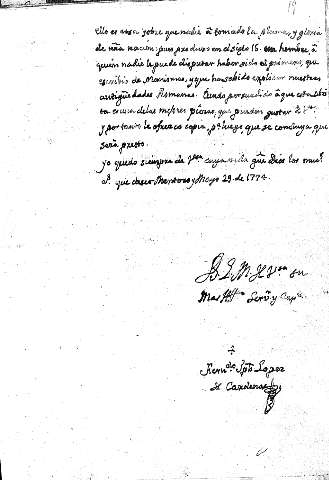 Ello es cosa sobre que nadie á tomado la pluma, y gloria
de nra nacion; pues produxo en el siglo 16. un hombre á
quien nadie le puede disputar haber sido el primero, que
escribio de Marismas, y que ha sabido explicar nuestras
antiguedades Romanas. Quedo persuadido á que esta obri
ta es una de las mejores piezas, que pueden gustar á Vs.
y por tanto le ofrezco copia, luego que se concluya, que
será presto.
Yo quedo siempre de Vs. cuya vida gue Dios los mus
as. que deseo Montoro y Mayo 29. de 1774.
B L M de Vsa su
Mas Serr. y Cap.
Ferndo Lopez
de Cardenas